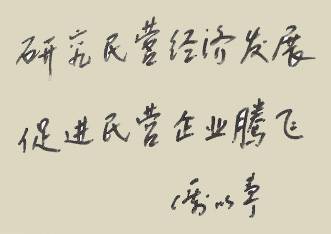 研究民营经济发展
促进民营企业腾飞